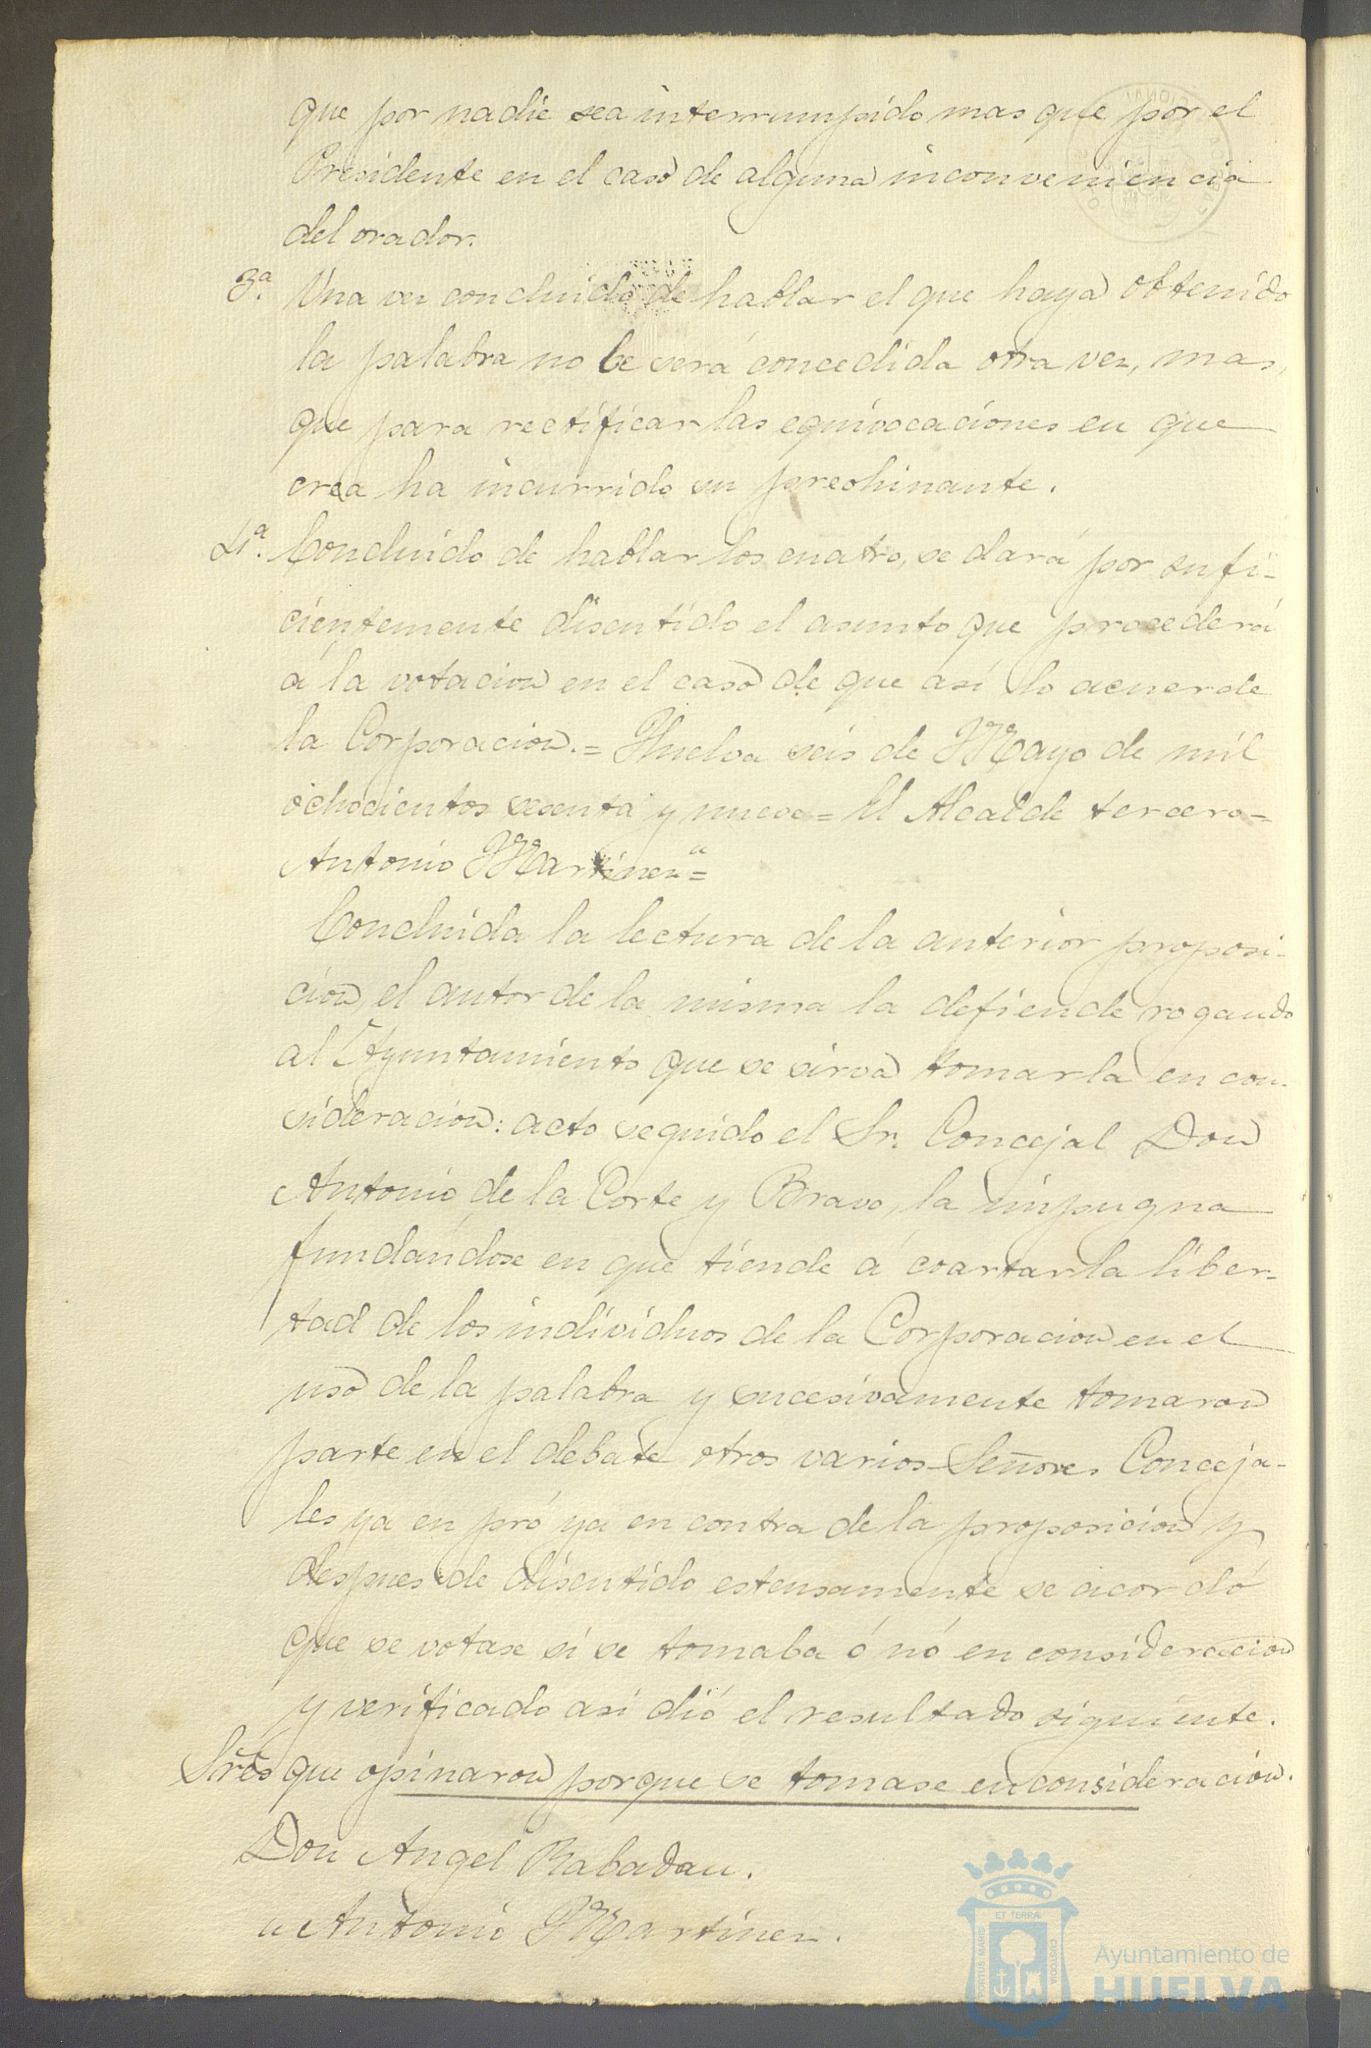 que por nadie sea interrumpido mas que por el
Presidente en el caso de alguna inconveniencia
del orador.
3ª. Una vez concluido de hablar el que haya obtenido
la palabra no le será concedida otra vez, mas,
que para rectificar las equivocaciones en que
crea ha incurrido su preohinante.
4ª. Concluido de hablar los cuatro, se dará por sufi-
cientemente discutido el asunto que procederá
á la votacion en el caso de que así lo acuerde
la Corporacion.= Huelva seis de Mayo de mil
ochocientos sesenta y nueve= El Alcalde tercero=
Antonio Martinez"=
Concluida la lectura de la anterior proposi-
cion, el autor de la misma la defiende rogando
al Ayuntamiento que se sirva tomarla en con-
sideracion: acto seguido el Sr. Concejal Don
Antonio de la Corte y Bravo, la impugna
fundándose en que tiende á coartar la liber-
tad de los individuos de la Corporacion en el
uso de la palabra y sucesivamente tomaron
parte en el debate otros varios Señores Conceja-
les ya en pró ya en contra de la proposicion y
despues de discutido estensamente se acordó
que se votase si se tomaba ó nó en consideracion
y verificado asi dió el resultado siguiente.
Sres que opinaron porque se tomase en consideracion.
Don Angel Rabadan.
" Antonio Martinez.
ET TERRA
PORTUS MARIS
CUSTODIA
Ayuntamiento de
HUELVA